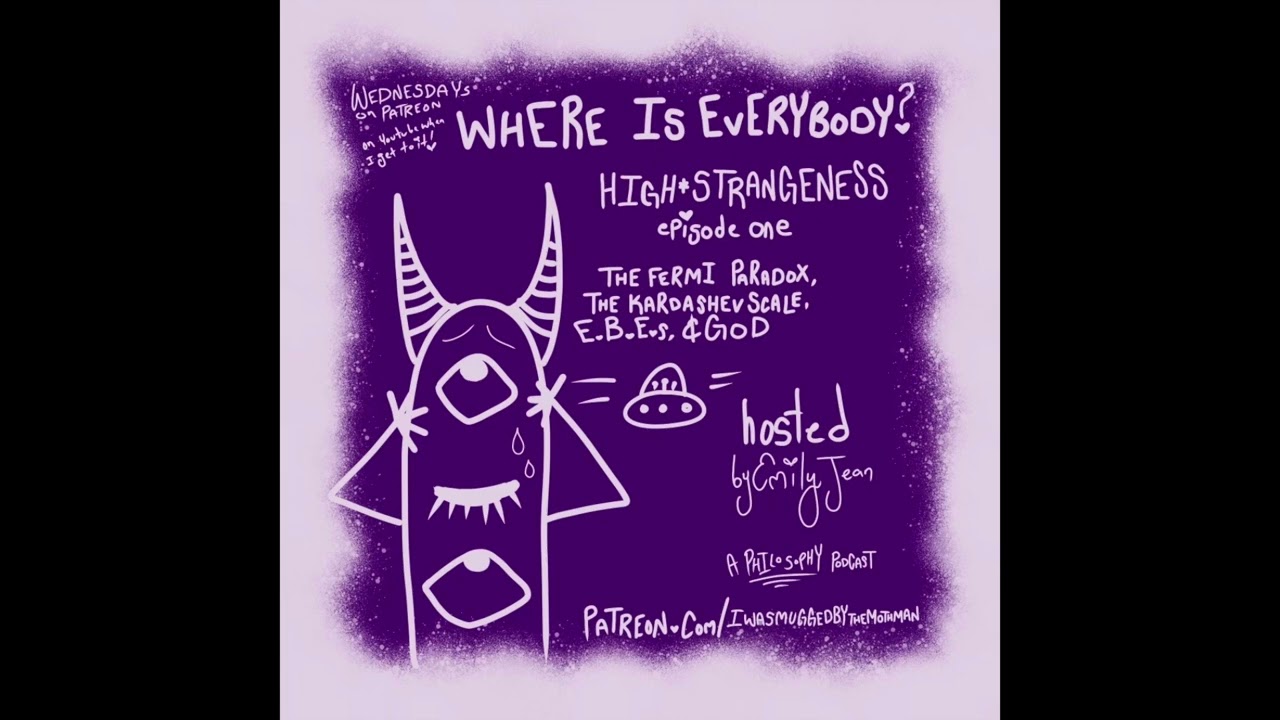 WEDNESDAYs
on PATREON
on Youtube when
I get to it!
WHERE IS EVERYBODY?
HIGH*STRANGENESS
episode one
THE FERMI PARADOX,
THE KARDASHEV SCALE,
E.B.E.s, & GOD
hosted
by Emily Jean
A PHILOSOPHY PODCAST
PATREON.Com/IWASMUGGEDBYTHEMOTHMAN